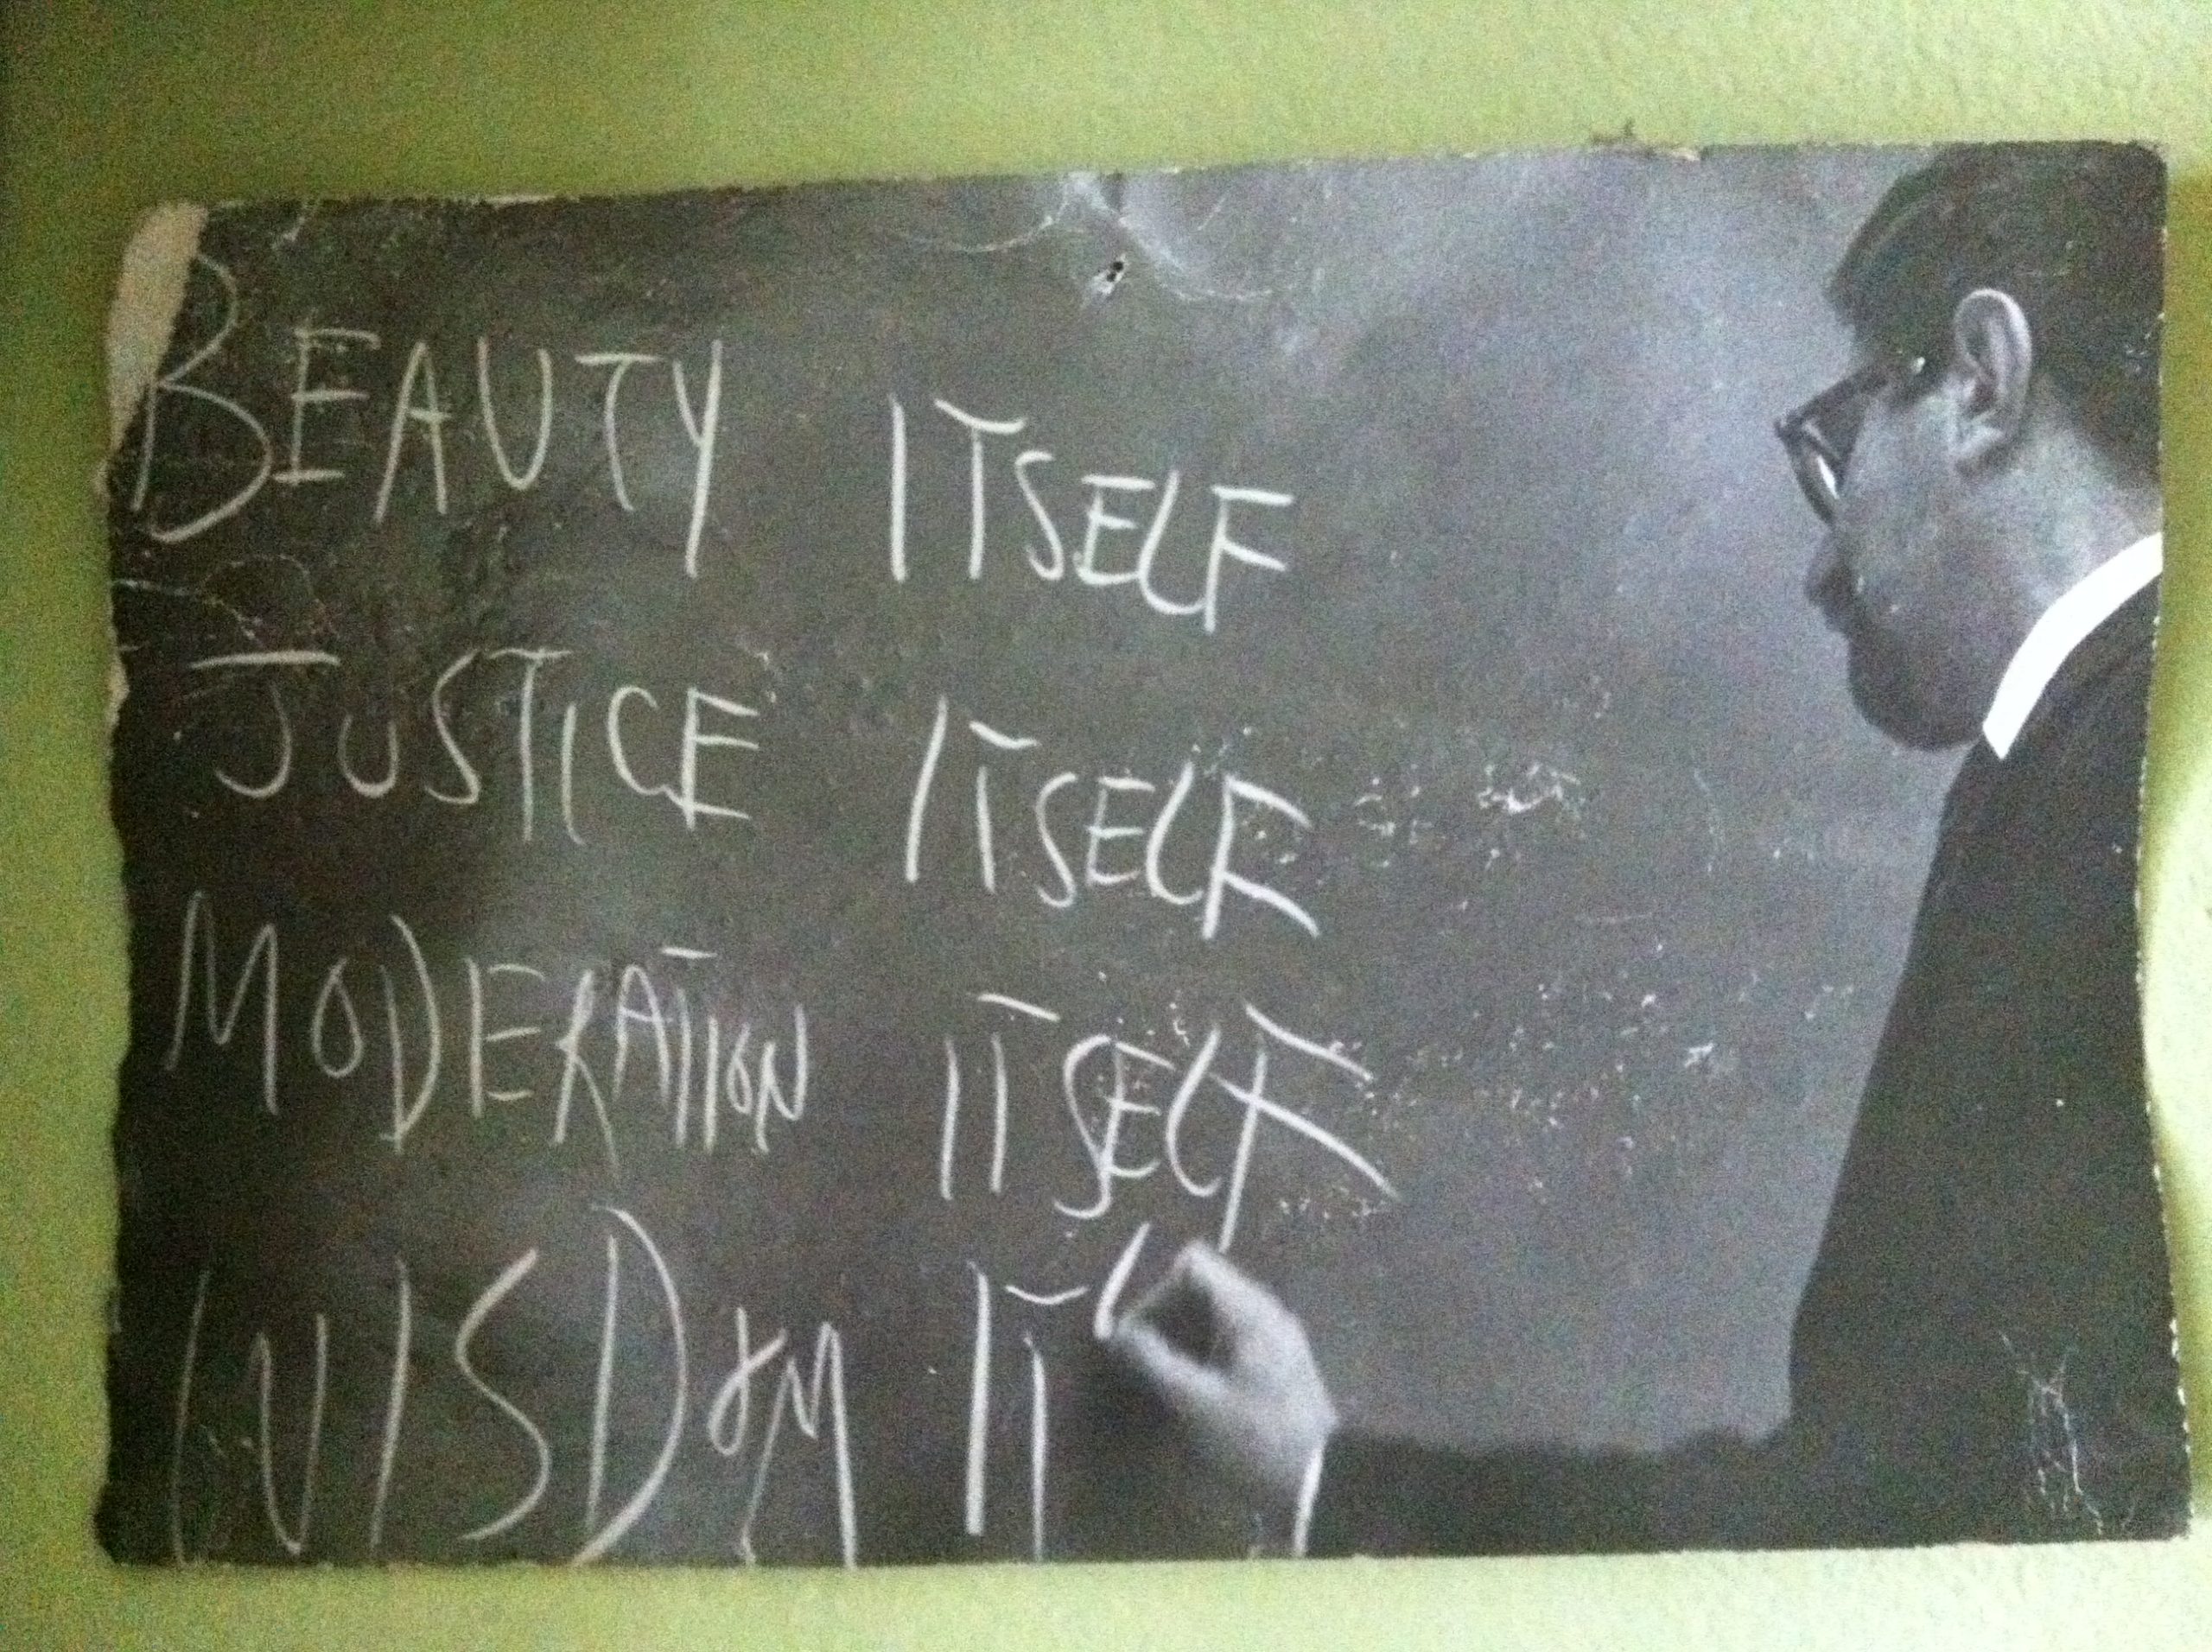 BEAUTY ITSELF
JUSTICE ITSELF
MODERATION ITSELF
WISDOM IT